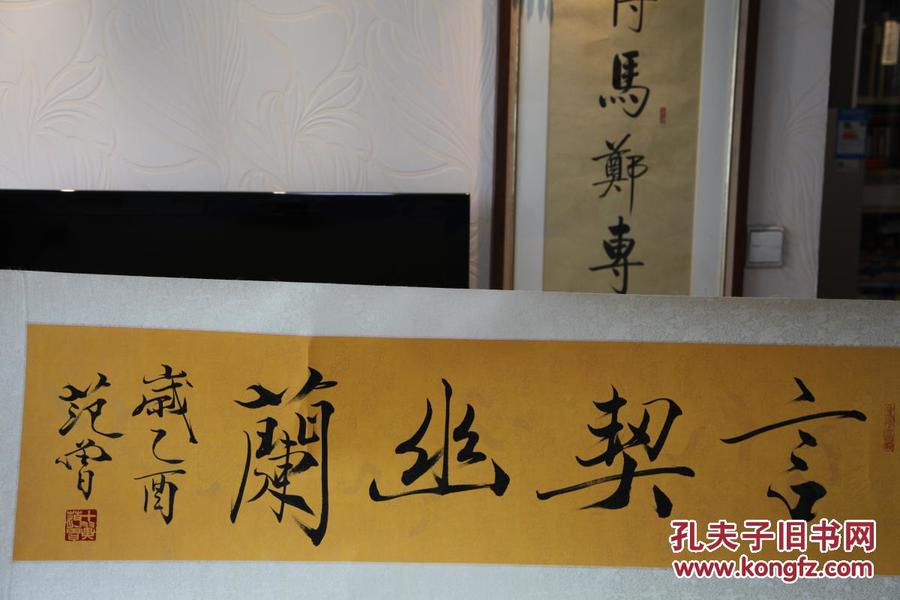 馬鄭専
言契幽蘭
歲乙酉
范曾
孔夫子旧书网
www.kongfz.com